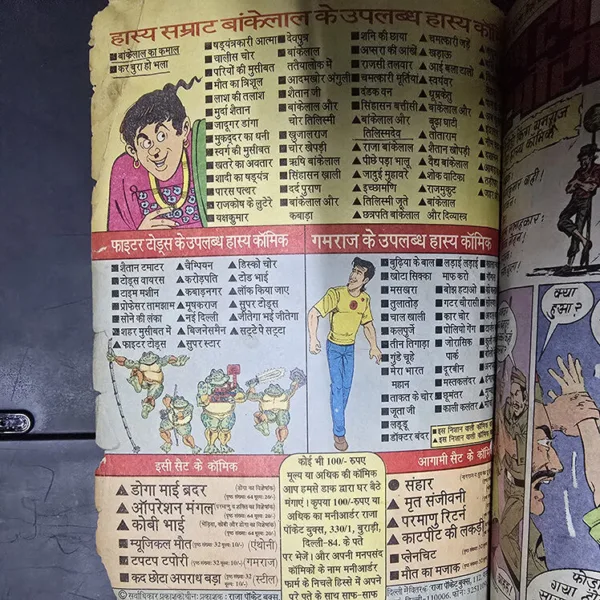 हास्य सम्राट बांकेलाल के उपलब्ध हास्य कॉमि
■ बांकेलाल का कमाल
■ कर बुरा हो भला
■ षड्यंत्रकारी आत्मा
■ चालीस चोर
■ परियों की मुसीबत
■ मौत का त्रिशूल
■ लाश की तलाश
■ मुर्दा शैतान
■ जादूगर डांगा
■ मुकद्दर का धनी
■ स्वर्ग की मुसीबत
■ खतरे का अवतार
■ शादी का षड्यंत्र
■ पारस पत्थर
■ राजकोष के लुटेरे
■ यक्षकुमार
■ देवपुत्र
■ बांकेलाल
ततैयालोक में
■ आदमखोर अंगुली
■ शैतान जी
■ बांकेलाल और
चोर तिलिस्मी
■ खुजालराज
■ चोर खोपड़ी
■ ऋषि बांकेलाल
■ सिंहासन खाली
■ दर्द पुराण
■ बांकेलाल और
कबाड़ा
■ शनि की छाया
■ अप्सरा की आंखें
■ राजसी तलवार
■ चमत्कारी मूर्तियां
■ दंडक वन
■ सिंहासन बत्तीसी
■ बांकेलाल और
तिलिस्मदेव
▲ राजा बांकेलाल
▲ पीछे पड़ा भालू
▲ जादुई मुहावरे
▲ इच्छामणि
▲ तिलिस्मी जूते
▲ छत्रपति बांकेलाल
▲ चमत्कारी जड़ें
▲ खड़ाऊ
▲ आई बला टालो
▲ स्वयंवर
▲ धूम्रकेतु
▲ बांकेलाल और
बूढ़ा घाटी
▲ तोताराम
▲ शैतान खोपड़ी
▲ वैद्य बांकेलाल
▲ शोक वाटिका
▲ राजमुकुट
▲ बांकेलाल
और दिव्यास्त्र
फाइटर टोड्स के उपलब्ध हास्य कॉमिक
■ शैतान टमाटर
■ टोड्स वायरस
■ टाइम मशीन
■ प्रोफेसर तामझाम
■ सोने की लंका
■ शहर मुसीबत में
▲ फाइटर टोड्स
▲ चैम्पियन
▲ करोड़पति
▲ कबाड़नगर
▲ मूषकराज
▲ नई दिल्ली
▲ बिजनेसमैन
▲ सुपर स्टार
▲ डिस्को चोर
▲ टोड भाई
▲ लॉक किया जाए
▲ सुपर टोड्स
▲ जीतेगा भई जीतेगा
▲ सट्टे पे सट्टा
गमराज के उपलब्ध हास्य कॉमिक
■ बुढ़िया के बाल
■ खोटा सिक्का
■ मसखरा
■ तुलातोड़
■ चाल खाली
■ कलपुर्जे
■ तीन तिगाड़ा
■ गुंडे चूहे
■ मेरा भारत
महान
■ ताकत के चोर
■ जूता जी
■ लड्डू
■ डॉक्टर बंदर
■ लड़ाई लड़ाई
माफ करो
■ बोझ हटाओ
■ गटर चौरासी
■ कार चोर
■ पोलियो गैंग
■ जोरासिक
पार्क
■ दूरबीन
■ मस्तकलंदर
■ छूमंतर
■ काली कलंतर
■ इस निशान वाली कॉमिक
▲ इस निशान वाली कॉमिक
इसी सैट के कॉमिक
▲ डोगा माई ब्रदर
▲ ऑपरेशन मंगल
▲ कोबी भाई
■ म्यूजिकल मौत (पृष्ठ संख्या 32 मूल्य 10/-) (एंथोनी)
■ टपटप टपोरी (पृष्ठ संख्या 32 मूल्य 10/-) (गमराज)
■ कद छोटा अपराध बड़ा (पृष्ठ संख्या 32 मूल्य 10/-) (स्टील)
कोई भी 100/- रुपए
मूल्य या अधिक की कॉमिक
आप हमसे डाक द्वारा घर बैठे
मंगाएं। कृपया 100/-रुपए या
अधिक का मनीआर्डर राजा
पॉकेट बुक्स, 330/1, बुराड़ी,
दिल्ली-84. के पते
पर भेजें। और अपनी मनपसंद
कॉमिकों के नाम मनीआर्डर
फार्म के निचले हिस्से में अपने
पूरे पते के साथ साफ-साफ
आगामी सैट के कॉमिक
● संहार
▲ मृत संजीवनी
▲ परमाणु रिटर्न
▲ काटपीट की लकड़ी
■ प्लेनचिट
■ मौत का मजाक
© सर्वाधिकार प्रकाशकाधीन: प्रकाशक: राजा पॉकेट बुक्स
क्या
हुआ?
फोड़
गया